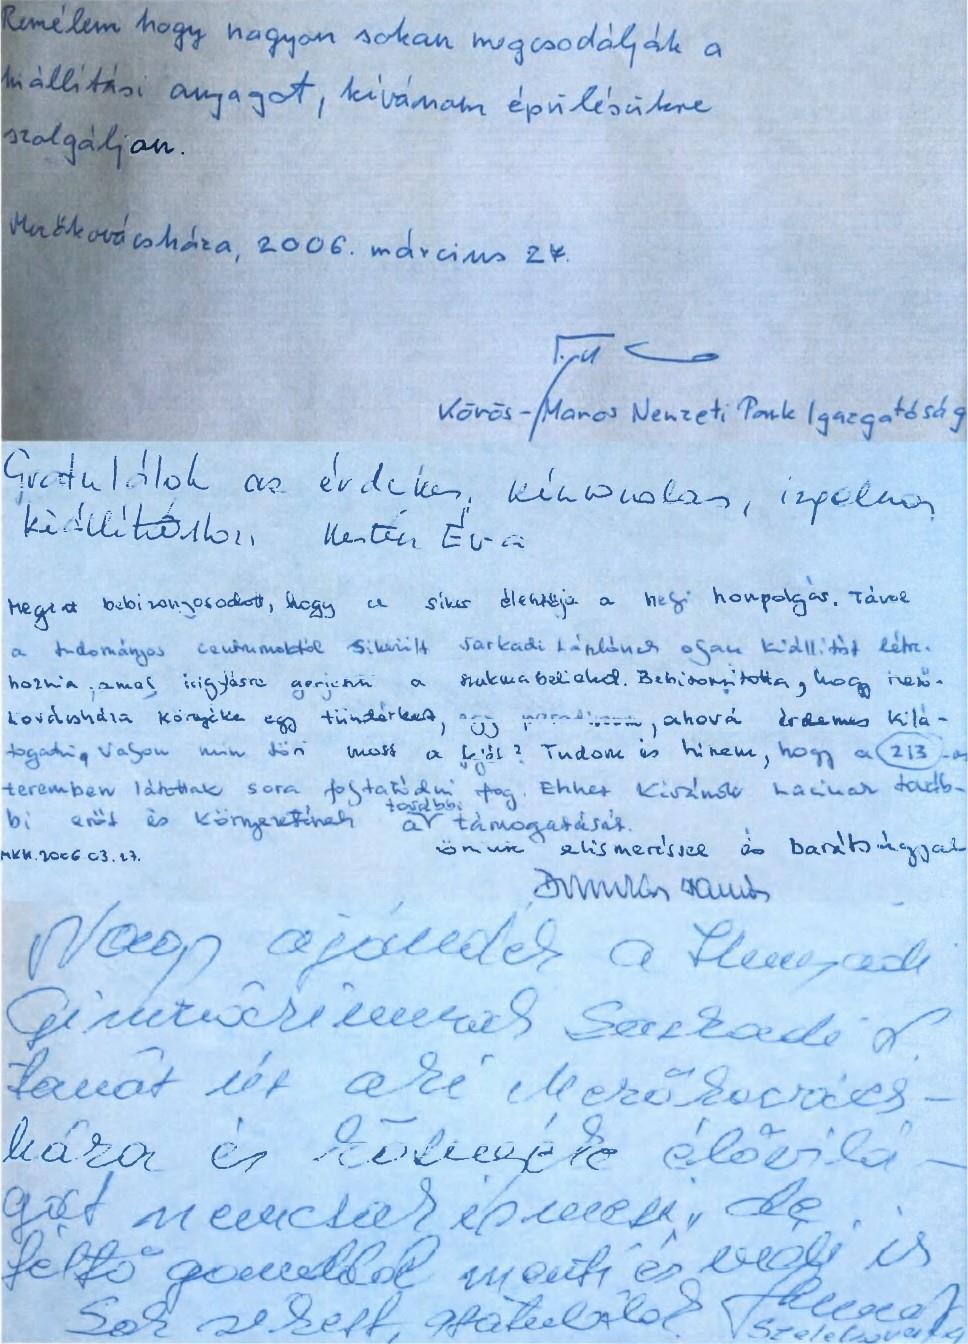 Remélem hogy nagyon sokan megcsodálják a
kiállítási anyagot, kívánom épülésükre
szolgáljon.
Mezőkovácsháza, 2006. március 27.
Körös-Maros Nemzeti Park Igazgatóság
Gratulálok az érdekes, színvonalas, izgalmas
kiállításhoz. Éva
Megint bebizonyosodott, hogy a siker élentője a helyi honpolgár. Távol
a tudományos centrumoktól sikerült Sarkadi Lászlónak olyan kiállítást létre-
hoznia, amely irigylésre gerjeszti a szakmabelieket. Bebizonyította, hogy Mező-
kovácsháza környéke egy tündérkert, egy paradicsom, ahová érdemes kilá-
togatni, vajon min töri most a fejét? Tudom és hiszem, hogy a 213-as
teremben látottak sora folytatódni fog. Ehhez kívánok Lacinak továb-
bi erőt és környezetének további támogatását.
MKH. 2006.03.27. őszinte elismeréssel és barátsággal
Nagy ajándék a Hunyadi
Gimnáziumnak Sarkadi L.
tanár úr aki Mezőkovács-
háza és környéke élővilá-
gát nemcsak ismeri, de
féltő gonddal menti és védi is
Sok sikert, gratulálok